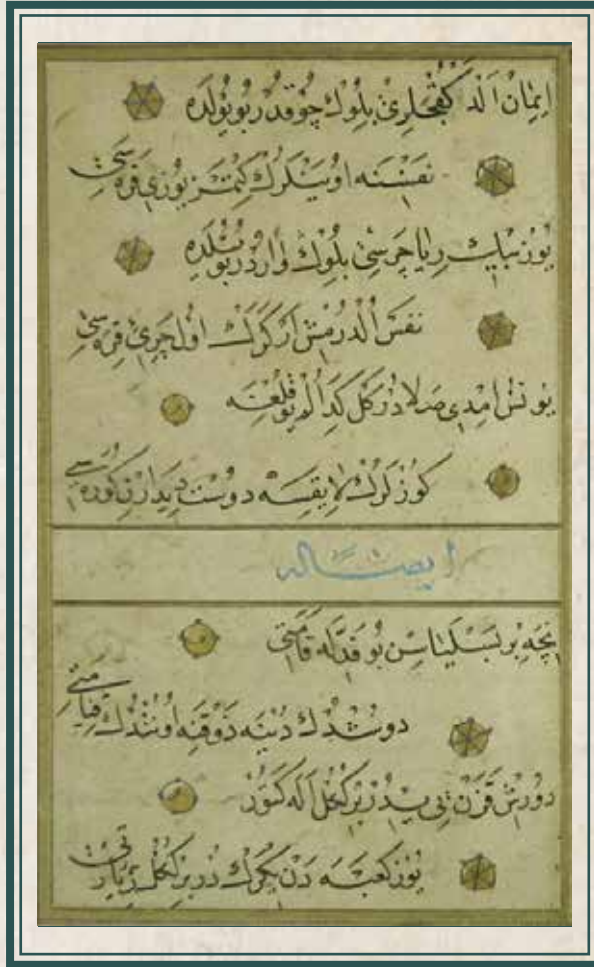 ايمان الدكقجلرى بلوك جوقدر بو يولده
نفسنه اوينلرك كتمز يوزى قره سى
يوز بيك ريا جريسى بلوك واردر بو يولده
نفس الدرمش ار كرك اول جرى قره سى
يونس امدى صلا در كل كدالم بو قلعيه
كوزلرك لايقسه دوست ديدارن كوره سى
ايضا له
نجه بر بسليه سن بو قدله قامتى
دوشدك دنيه ذوقنه اونتدك قيامتى
دورش قزن يى يدر بر ككل اله كتور
يوز كعبه دن يكرك در بر ككل زيارتى